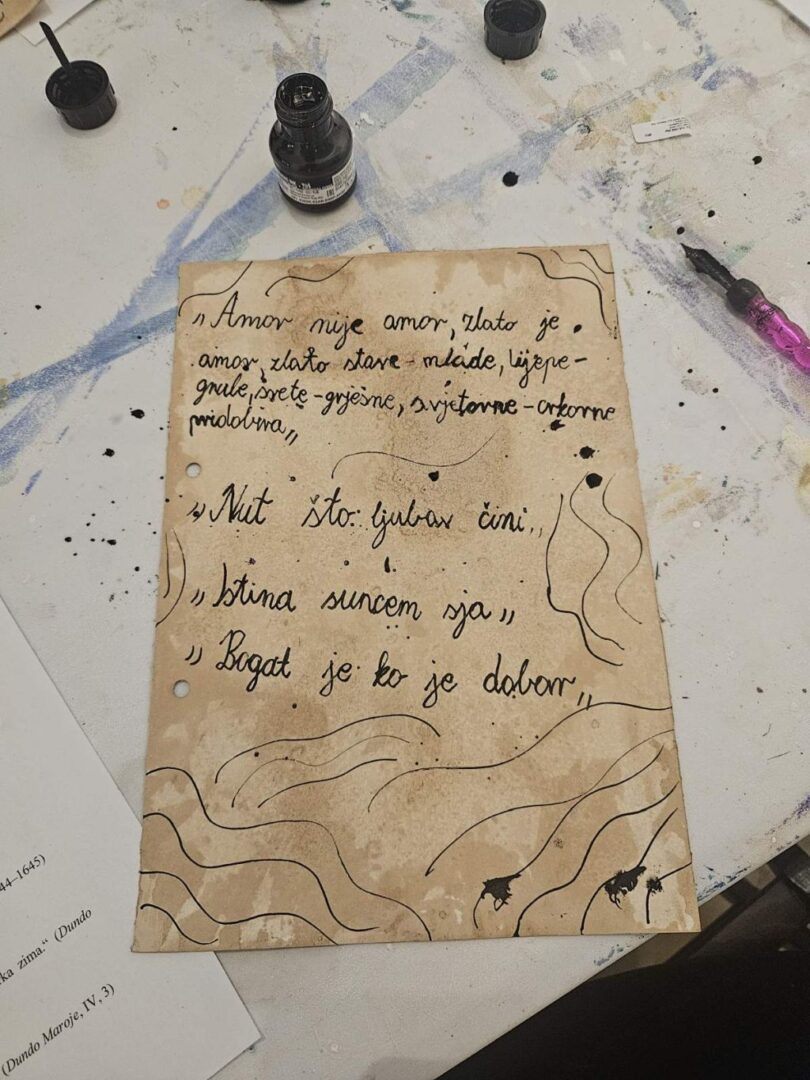 „Amor nije amor, zlato je
amor, zlato stare - mlade, lijepe -
grule, svete - grješne, svjetovne - crkovne
pridobiva„
„Nut što ljubav čini„
„Istina suncem sja„
„Bogat je ko je dobar„
44–1645)
ka zima.“ (Dundo
(Dundo Maroje, IV, 3)